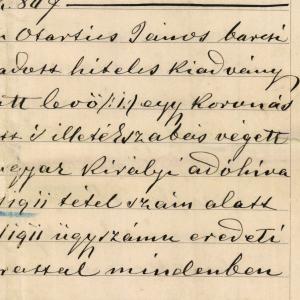 849
Otartics János barcsi
adott hiteles kiadvány
att levő /:1:/ egy koronás
és illetékszabás végett
magyar királyi adóhiva
1911 tétel szám alatt
1911 ügyszámu eredeti
rattal mindenben